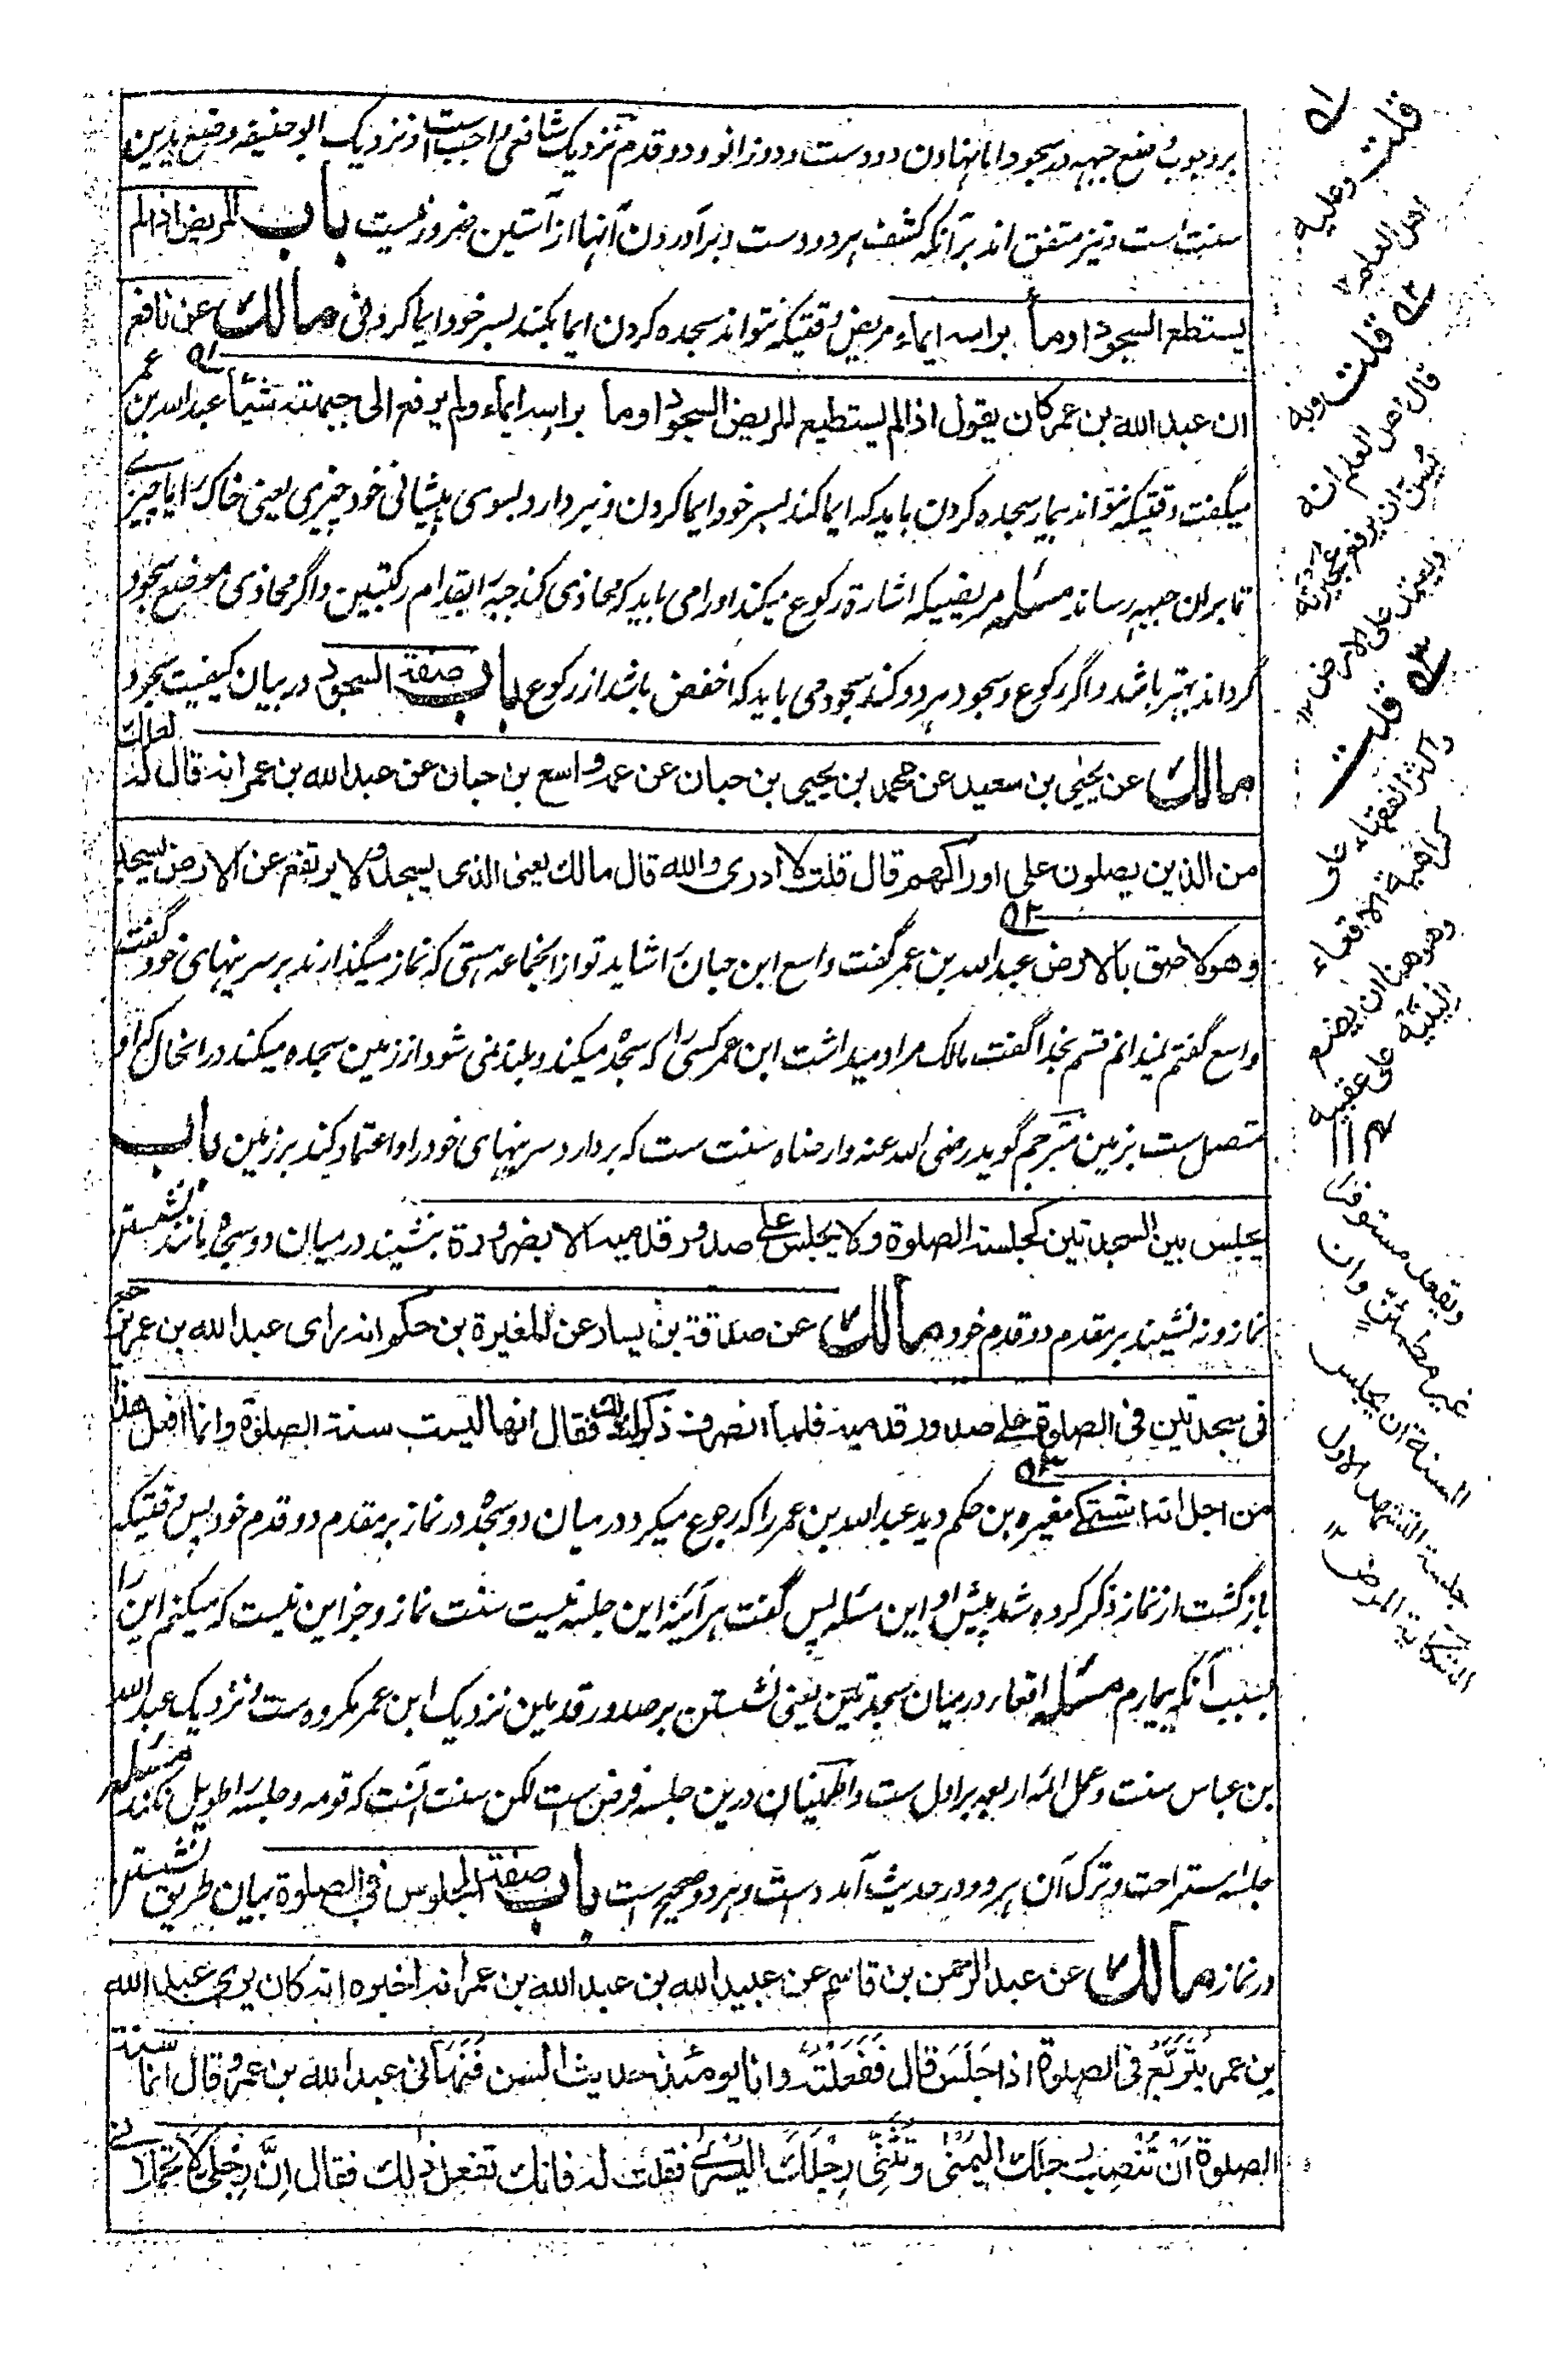 بر وجوب وضع جبهه در سجود اما نهادن دو دست و دو زانو و دو قدم نزدیک شافعی واجب است و نزدیک ابو حنیفه وضع یدین
سنت است و نیز متفق اند بر آنکه کشف هر دو دست و برآوردن آنها از آستین ضرور نیست باب المریض اذا لم
یستطع السجود اومأ براسه ایماء مریض وقتیکه نتواند سجده کردن ایما بکند بسر خود ایما کردنی مالك عن نافع
ان عبد الله بن عمر كان يقول اذا لم يستطع المريض السجود اومأ براسه ايماء ولم يرفع الى جبهته شيئا عبد الله بن عمر
میگفت وقتیکه نتواند بیمار سجده کردن باید که ایما کند بسر خود ایما کردن و نبردارد بسوی پیشانی خود چیزی یعنی خاک را یا چیزے
تا بران جبهه رساند مسئله مریضیکه اشارة رکوع میکند او را می باید که محاذی کند جبه را بقدام رکبتین و اگر محاذی موضع سجود
گرداند بهتر باشد و اگر رکوع و سجود هر دو کند سجود می باید که اخفض باشد از رکوع باب صفة السجود در بیان کیفیت سجود
مالك عن يحيى بن سعيد عن محمد بن يحيى بن حبان عن عمه واسع بن حبان عن عبد الله بن عمر انه قال له لعلك
من الذين يصلون على اوراكهم قال قلت لا ادرى والله قال مالك يعنى الذى يسجد ولا يرتفع عن الارض يسجد
وهو لاصق بالارض عبد الله بن عمر گفت واسع ابن حبان را شاید تو از انجماعه هستی که نماز میگذارند بر سرینهای خود گفت
واسع گفتم نمیدانم قسم بخدا گفت مالک مراد میداشت ابن عمر کسی را که سجده میکند و بلند نمی شود از زمین سجده میکند در انحال که او
متصل ست بزمین مترجم گوید رضی الله عنه وارضاه سنت ست که بردارد سرینهای خود را و اعتماد کند بر زمین باب
يجلس بين السجدتين كجلسة الصلوة ولا يجلس على صدور قدميه الا بضرورة بنشیند درمیان دو سجده مانند نشستن
نماز و نه نشیند بر مقدم دو قدم خود مالك عن صدقة بن يسار عن المغيرة بن حكيم انه راى عبد الله بن عمر يرجع
فى سجدتين فى الصلوة على صدور قدميه فلما انصرف ذكر له ذلك فقال انها ليست سنة الصلوة وانما افعل هذا
من اجل انى اشتكى مغیره بن حکم دید عبد الله بن عمر را که رجوع میکرد درمیان دو سجده در نماز بر مقدم دو قدم خود پس وقتیکه
بازگشت از نماز ذکر کرده شد پیش او این مسئله پس گفت هر آئینه این جلسه نیست سنت نماز و جز این نیست که میکنم این را
بسبب آنکه بیمارم مسئله اقعاء درمیان سجدتین یعنی نشستن بر صدور قدمین نزدیک ابن عمر مکروه ست و نزدیک عبد الله
بن عباس سنت و عمل ائمه اربعه بر اول ست و اطمینان درین جلسه فرض ست لکن سنت آنست که قومه و جلسه را طویل نکند مسئله
جلسه استراحت و ترک آن هر دو در حدیث آمده است و هر دو صحیح است باب صفة الجلوس فى الصلوة بیان طریق نشستن
در نماز مالك عن عبد الرحمن بن قاسم عن عبيد الله بن عبد الله بن عمر انه اخبره انه كان يرى عبد الله
بن عمر يَتَرَبَّعُ فى الصلوة اذا جَلَسَ قال فَفَعَلْتُهُ وانا يومئذ حديث السن فَنَهَانى عبد الله بن عمر وقال انما سنة
الصلوة اَنْ تَنْصِبَ رِجلَكَ الْيُمْنٰى وتَثْنِىَ رِجْلَكَ اليُسْرٰى فقلت له فانك تفعل ذلك فقال اِنَّ رِجْلَىَّ لَا تحملانى
۵۱
قلت وعليه
اهل العلم ۱۲
۵۲
قلت وبه
قال اهل العلم انه
ان يرفع عجيزته
على الارض ۱۲
۵۳
قلت
واكثر الفقهاء على
كراهية الاقعاء
وهو ههنا ان يضع
اليتيه على عقبيه
ويقعد مستوفزا
غير مطمئن وان
السنة ان يجلس
جلسة التشهد الاول
الشكاية المرض ۱۲